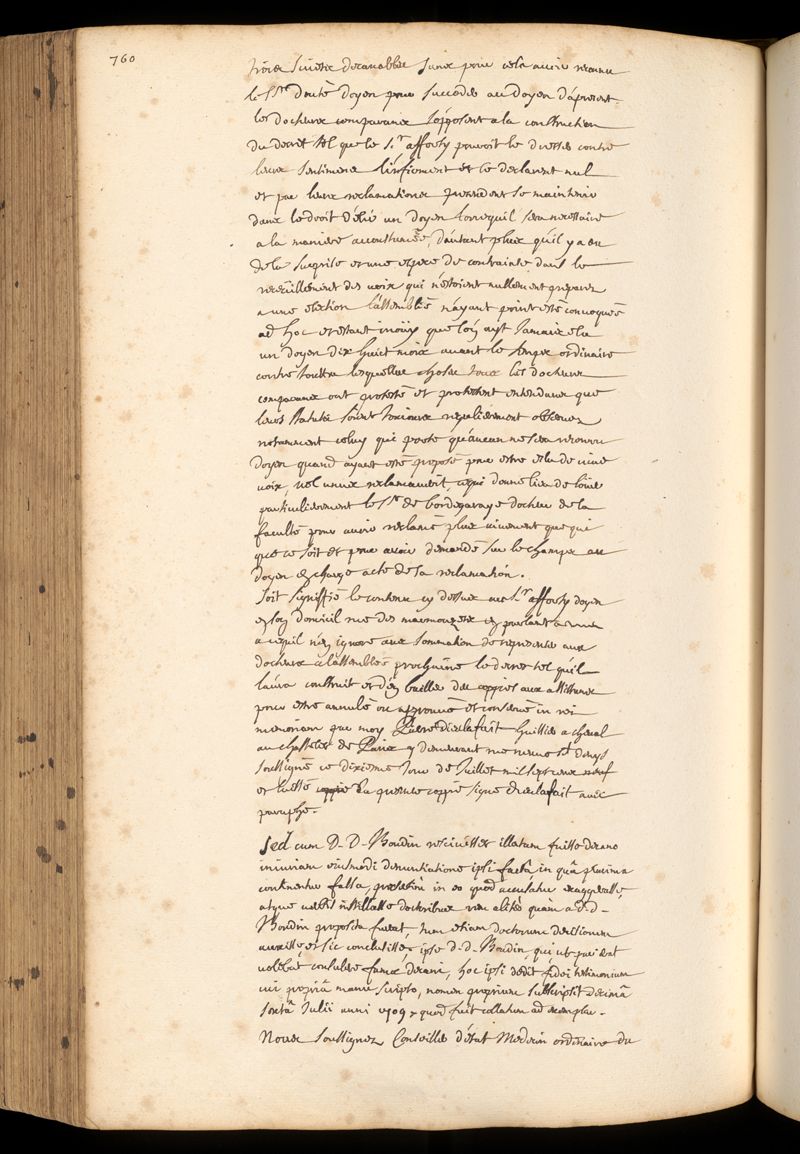 760
le Sr. doute doyen pour succeder au doyen dapresent
les docteurs comparans s'opposent a la construction
du decret tel que le Sr. afforty pouroit le dresser contre
leurs sentimens l'infirment et le declarent nul
et par leurs reclamations pretendent se maintenir
dans le droit d'élire un doyen lorsqu'il sera necessaire
a la maniere accoustumée, d'autant plus qu'il y a eu
de la surprise et une espece de contrainte dans le
recueillement des voix qui n'estoient nullement préparez
a une election l'assemblée n'ayant point esté convoquée
ad hoc et estant inoüy que l'on ayt jamais elu
un doyen dix huict mois avant le temps ordinaire
contre toutes lesquelles choses tous les docteurs
comparans ont protesté et protestent entendans que
leurs statuts soient toujours regulierement observez
notamment celuy qui porte qu'aucun ne sera reconnu
doyen quand ayant esté proposé pour estre elu de vive
voix, nul n'aura reclamé, ce qui donne lieu de loüer
particulierement le Sr. de bordegaraye docteur de la
faculté pour avoir reclamé plus vivement que qui
que ce soit et pour avoir demandé sur le champ au
doyen en charge acte de sa reclamation.
Soit signiffié le contenu cy dessus au Sr. afforty doyen
en son domicil rue des marmouzets en parlant a
a ce qu'il n'en ignore avec sommation de representer aux
docteurs a l'assemblée prochaine le decret tel qu'il
l'aura construit et d'en bailler des coppies aux assistans
pour estre annulé ou approuvé et conservé in rei
memoriam par moy Pierre dieulafait huissier a cheval
au chastelet de Paris y demeurant rue neuve St. denys
soussigné ce dixieme jour de Juillet mil sept cens neuf
et laissé coppie du present coppie signé dieulafait avec
paraphe.
Sed cum D. D. Boudin rescivisset illatum fuisse decano
iniuriam eiusmodi denuntiatione ipsi factâ in quâ plurima
continentur falsa, praesertim in eo quod accusatur
atque verbis instillasse doctoribus rem aliter quam a D. D.
Boudin proposita fuerat, tum etiam doctorum decisionem
et sic conclusisse, ipse D. D. Boudin, qui ut par erat
volebat consulere famae decani, hoc ipsi dedit fidei testimonium
cui propriâ manu scripto, nomen proprium subscripsit decimâ
sextâ Julii anni 1709, quod fuit collatum ad exemplar.
Nous soussignez Conseiller d'état Medecin ordinaire du